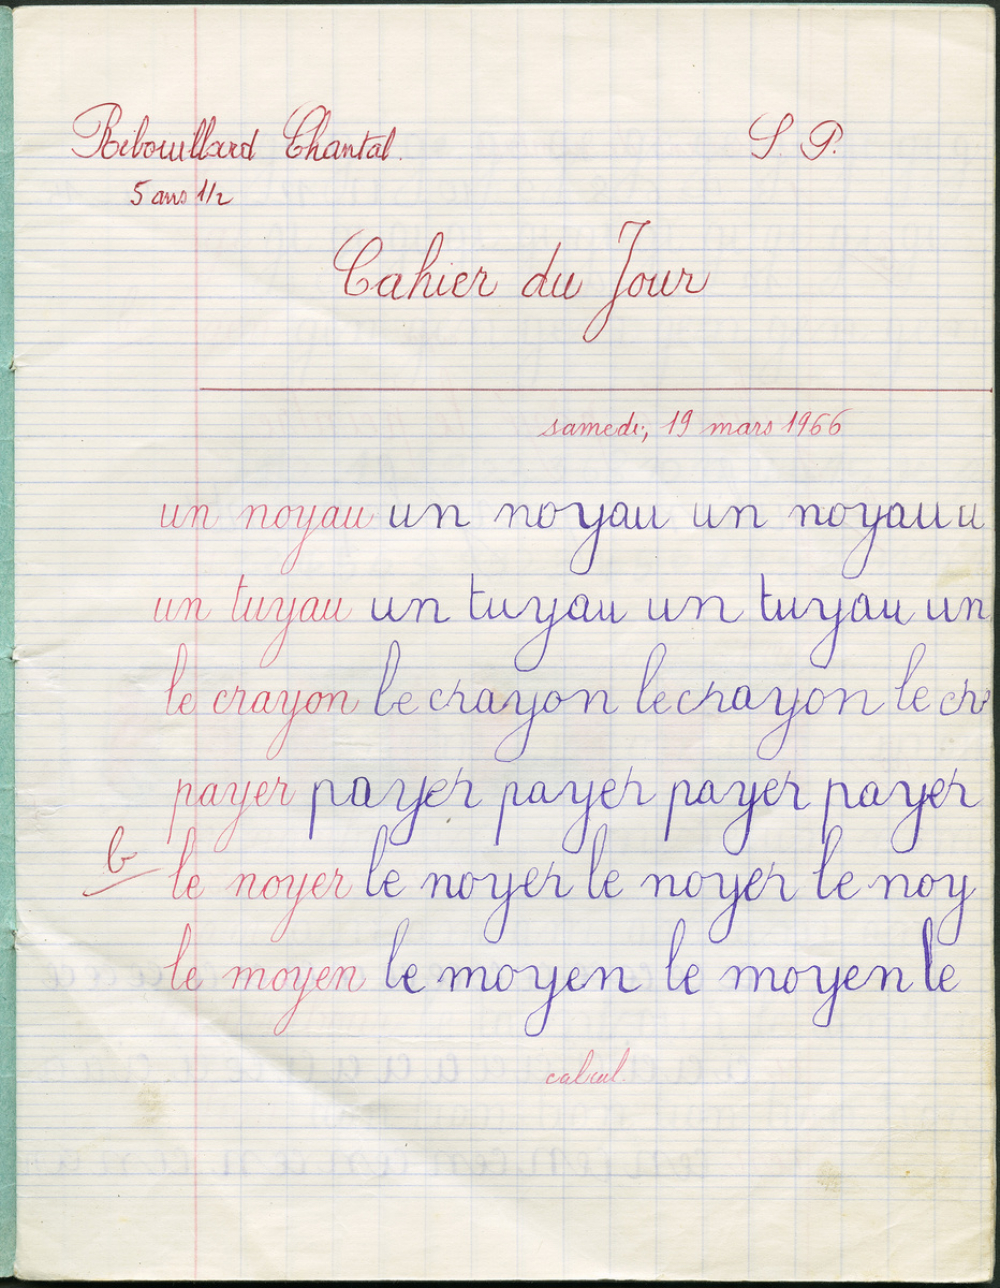 Ribouillard Chantal. S. P.
5 ans 1/2
Cahier du Jour
samedi, 19 mars 1966
un noyau un noyau un noyau u
un tuyau un tuyau un tuyau un
le crayon le crayon le crayon le cr
payer payer payer payer payer
b le noyer le noyer le noyer le noy
le moyen le moyen le moyen le
calcul.